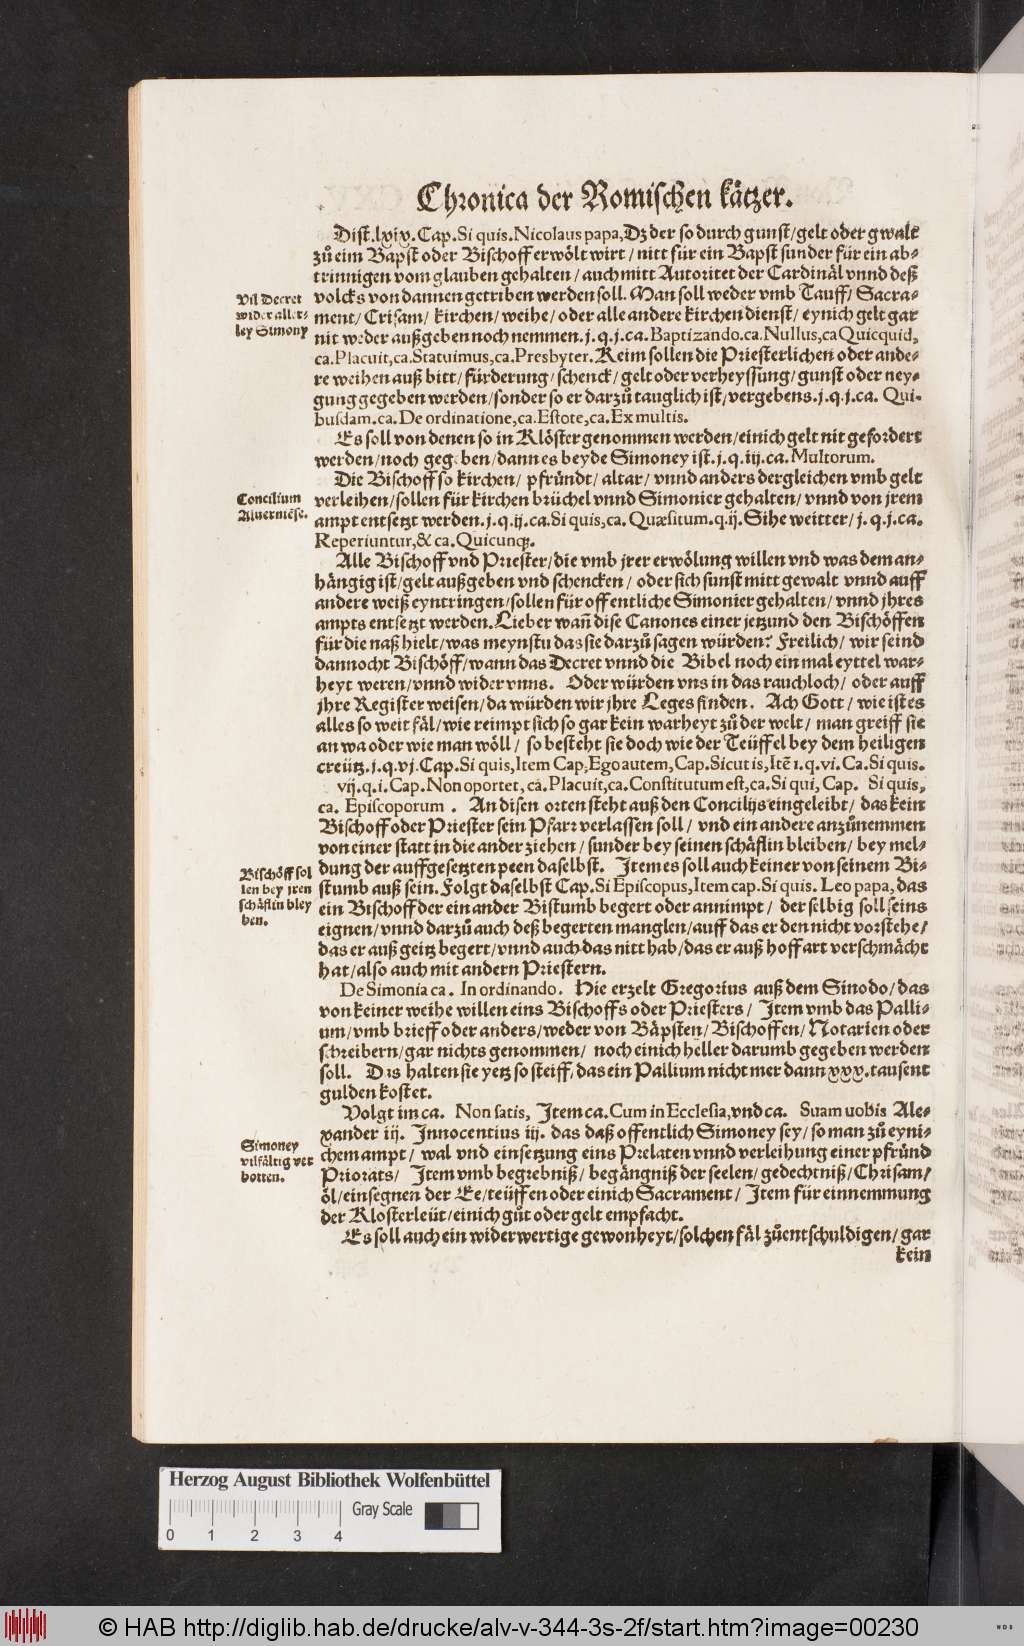 Chronica der Romischen kätzer.
Dist.lxix.Cap.Si quis.Nicolaus papa,Dz der so durch gunst/gelt oder gwalt
zů eim Bapst oder Bischoff erwölt wirt/nitt für ein Bapst sunder für ein ab-
trinnigen vom glauben gehalten/auch mitt Autoritet der Cardinäl vnnd deß
Vil Decret
wider aller-
ley Simony
volcks von dannen getriben werden soll. Man soll weder vmb Tauff/ Sacra-
ment/ Crisam/ kirchen/ weihe/ oder alle andere kirchen dienst/ eynich gelt gar
nit weder außgeben noch nemmen.j.q.j.ca.Baptizando.ca.Nullus,ca Quicquid,
ca.Placuit,ca.Statuimus,ca.Presbyter.Keim sollen die Priesterlichen oder ande-
re weihen auß bitt/fürderung/schenck/gelt oder verheyssung/gunst oder ney-
gung gegeben werden/sonder so er darzů tauglich ist/vergebens.j.q.j.ca. Qui-
busdam.ca.De ordinatione,ca.Estote,ca.Ex multis.
Es soll von denen so in Klöster genommen werden/einich gelt nit gefordert
werden/noch gegeben/dann es beyde Simoney ist.j.q.iij.ca.Multorum.
Concilium
Aluerniēse.
Die Bischoff so kirchen/ pfründt/ altar/ vnnd anders dergleichen vmb gelt
verleihen/sollen für kirchen brüchel vnnd Simonier gehalten/vnnd von jrem
ampt entsetzt werden.j.q.ij.ca.Si quis,ca. Quæsitum.q.ij.Sihe weitter/j.q.j.ca.
Reperiuntur,& ca.Quicunq;.
Alle Bischoff vnd Priester/die vmb jrer erwölung willen vnd was dem an-
hängig ist/gelt außgeben vnd schencken/ oder sich sunst mitt gewalt vnnd auff
andere weiß eyntringen/sollen für offentliche Simonier gehalten/vnnd jhres
ampts entsetzt werden.Lieber wañ dise Canones einer jetzund den Bischöffen
für die naß hielt/was meynstu das sie darzů sagen würden? Freilich/wir seind
dannocht Bischöff/wann das Decret vnnd die Bibel noch ein mal eyttel war-
heyt weren/vnnd wider vnns. Oder würden vns in das rauchloch/ oder auff
jhre Register weisen/da würden wir jhre Leges finden. Ach Gott/wie ist es
alles so weit fäl/wie reimpt sich so gar kein warheyt zů der welt/man greiff sie
an wa oder wie man wöll/ so besteht sie doch wie der Teüffel bey dem heiligen
creütz.j.q.vj.Cap.Si quis,Item Cap,Ego autem,Cap.Sicut is,Itē 1.q.vi.Ca.Si quis.
vij.q.i.Cap.Non oportet,ca.Placuit,ca.Constitutum est,ca.Si qui,Cap. Si quis,
ca. Episcoporum. An disen orten steht auß den Concilijs eingeleibt/das kein
Bischoff oder Priester sein Pfarr verlassen soll/ vnd ein andere anzůnemmen
von einer statt in die ander ziehen/sunder bey seinen schäflin bleiben/bey mel-
Bischöff sol
len bey jren
schäflin bley
ben.
dung der auffgesetzten peen daselbst. Item es soll auch keiner von seinem Bi-
stumb auß sein.Folgt daselbst Cap.Si Episcopus,Item cap.Si quis. Leo papa,das
ein Bischoff der ein ander Bistumb begert oder annimpt/ der selbig soll seins
eignen/vnnd darzů auch deß begerten manglen/auff das er den nicht vorstehe/
das er auß geitz begert/vnnd auch das nitt hab/das er auß hoffart verschmächt
hat/also auch mit andern Priestern.
De Simonia ca. In ordinando. Hie erzelt Gregorius auß dem Sinodo/das
von keiner weihe willen eins Bischoffs oder Priesters/ Item vmb das Palli-
um/vmb brieff oder anders/weder von Bäpsten/Bischoffen/Notarien oder
schreibern/gar nichts genommen/ noch einich heller darumb gegeben werden
soll. Das halten sie yetz so steiff/das ein Pallium nicht mer dann xxx.tausent
gulden kostet.
Volgt im ca. Non satis, Item ca.Cum in Ecclesia,vnd ca. Suam uobis Ale-
xander iij. Innocentius iij. das daß offentlich Simoney sey/so man zů eyni-
Simoney
vilfältig ver
botten.
chem ampt/ wal vnd einsetzung eins Prelaten vnnd verleihung einer pfründ
Priorats/ Item vmb begrebniß/begängniß der seelen/gedechtniß/Chrisam/
öl/einsegnen der Ee/teüffen oder einich Sacrament/ Item für einnemmung
der Klosterleüt/einich gůt oder gelt empfacht.
Es soll auch ein widerwertige gewonheyt/solchen fäl zůentschuldigen/gar
kein
Herzog August Bibliothek Wolfenbüttel
0 1 2 3 4 Gray Scale
© HAB http://diglib.hab.de/drucke/alv-v-344-3s-2f/start.htm?image=00230